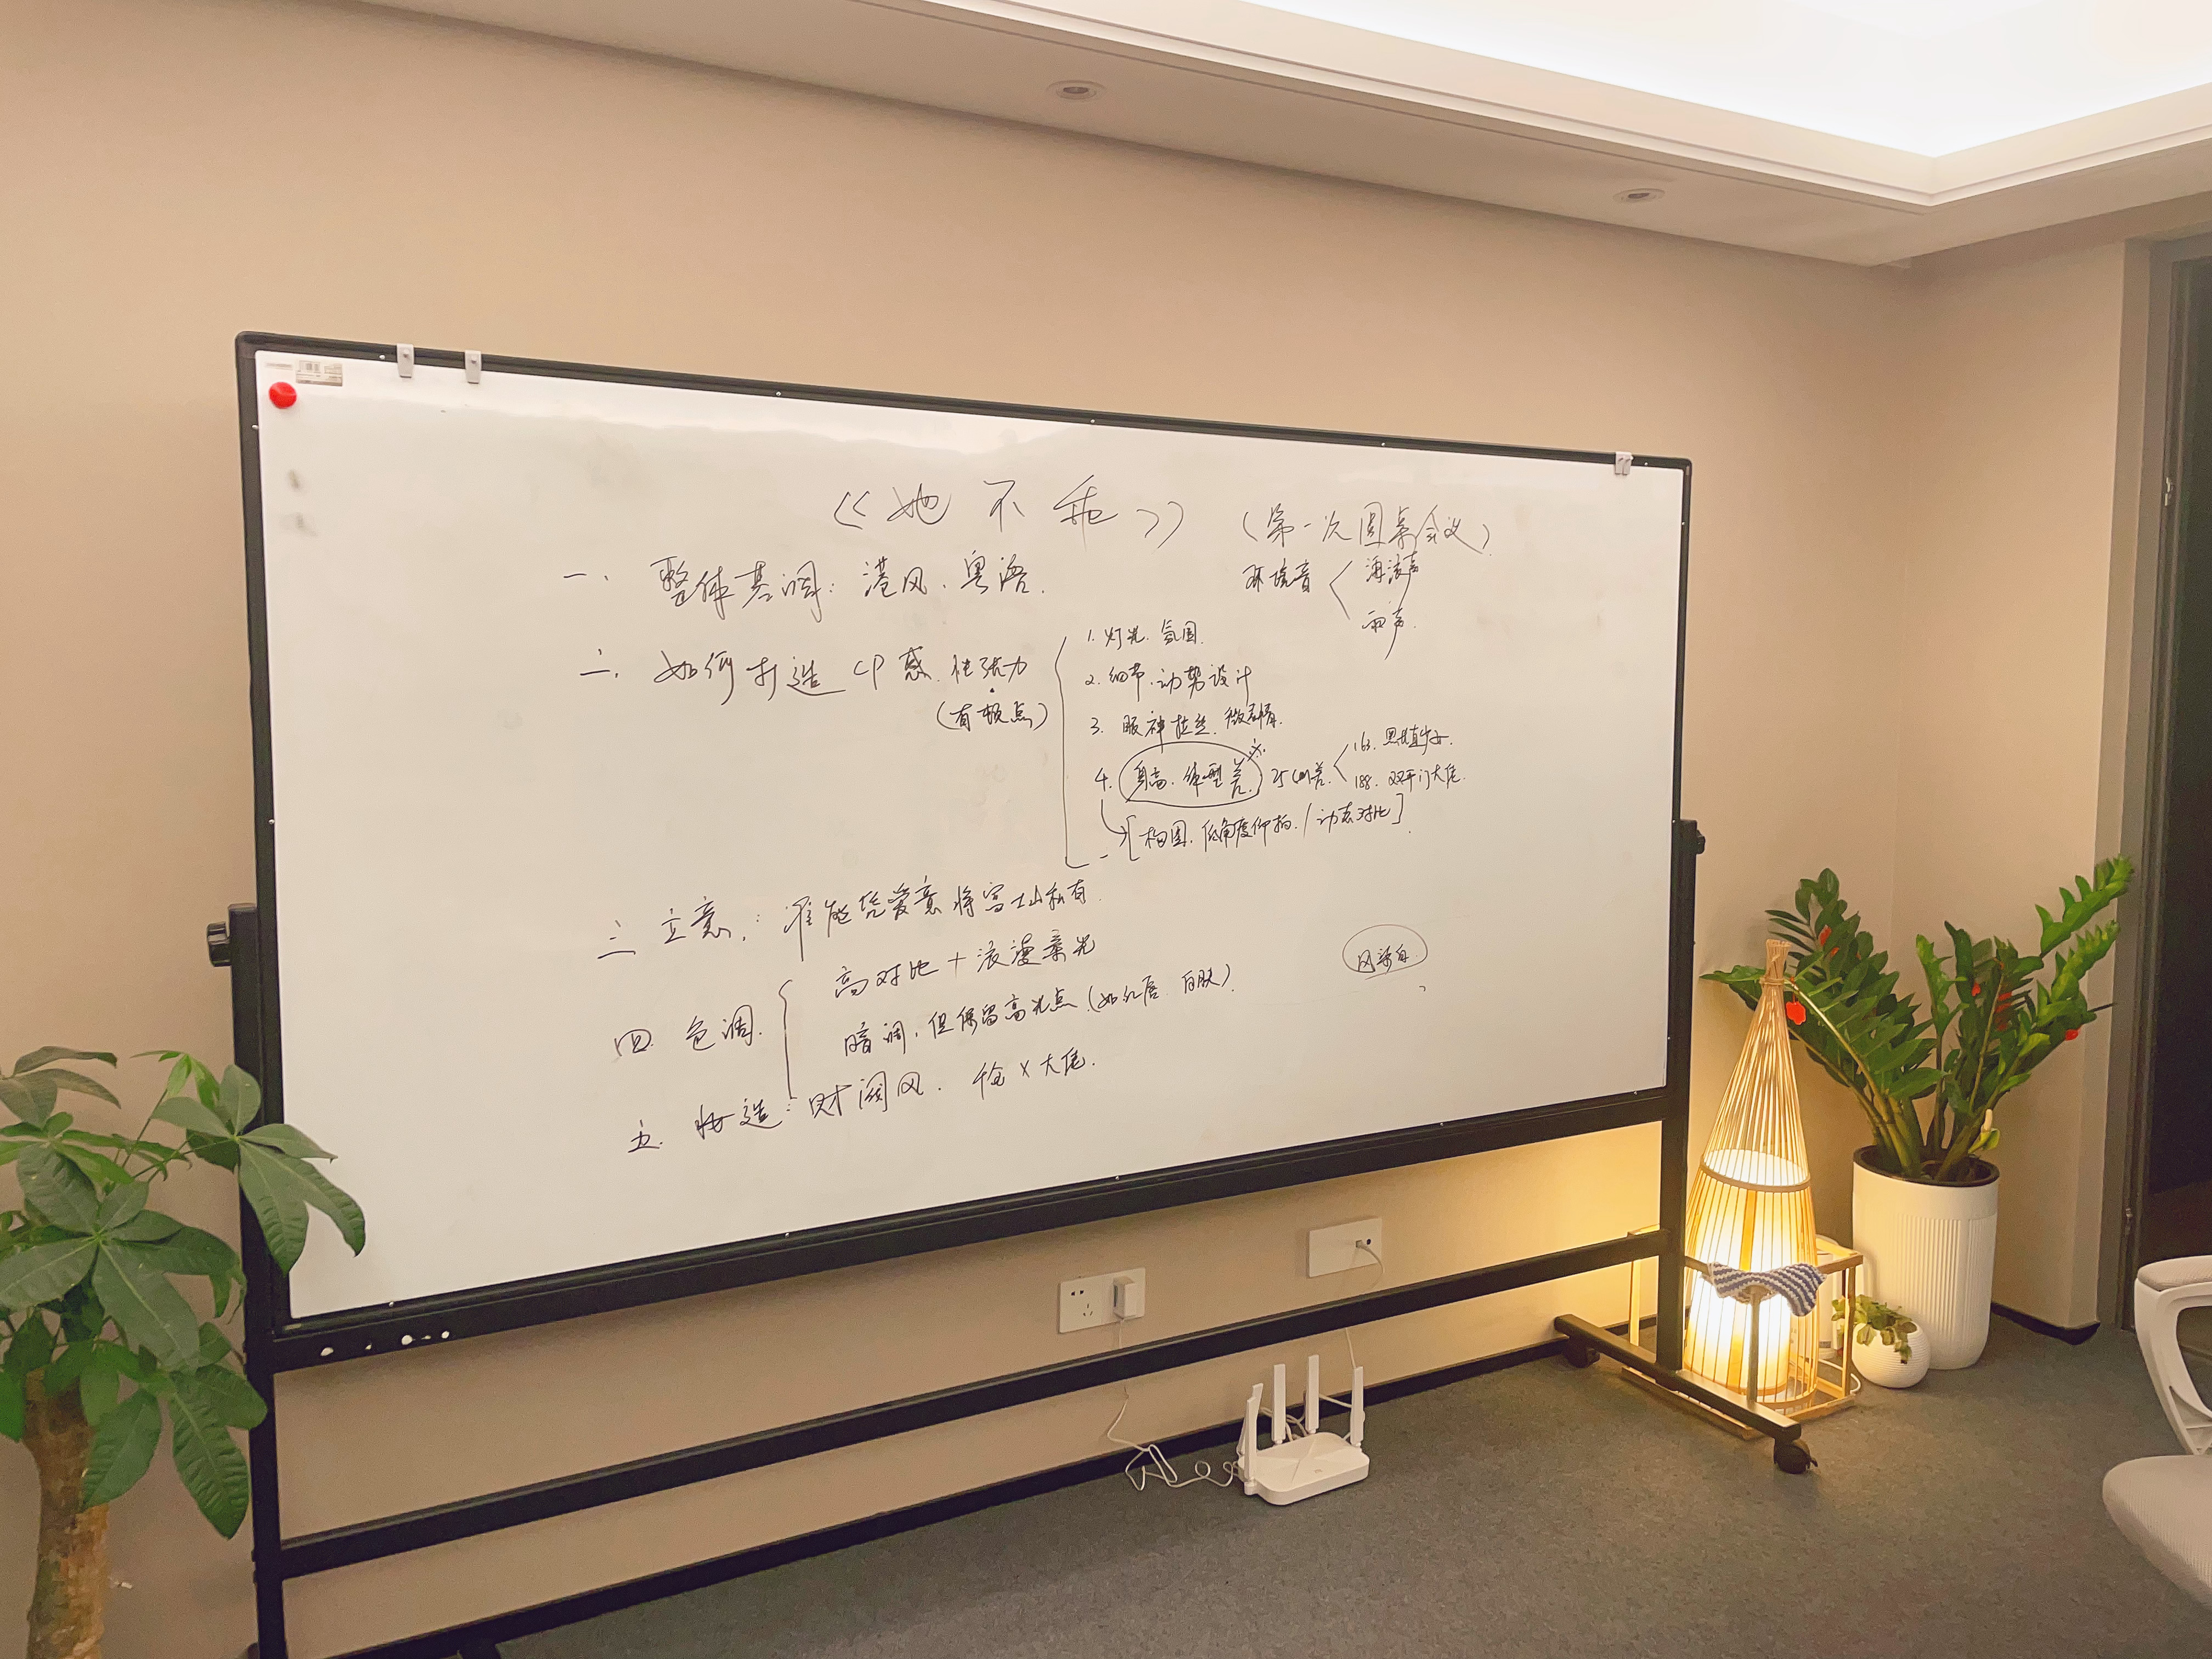 《她不乖》 （第一次圆桌会议）
一、整体基调：港风、粤语.
环境音 海浪声
雨声.
二、如何打造CP感.性张力
（有顿点）
1. 灯光.氛围.
2. 细节.动势设计
3. 眼神拉丝.微剧情.
4. 身高、体型差. 25cm差. 163.黑长直少女.
188.双开门大佬.
[构图.低角度仰拍./动态对比].
三 立意：谁能凭爱意将富士山私有.
四.色调. 高对比+浪漫柔光
暗调，但保留高光点（如红唇.白肤）.
五.妆造：财阀风. 千金×大佬.